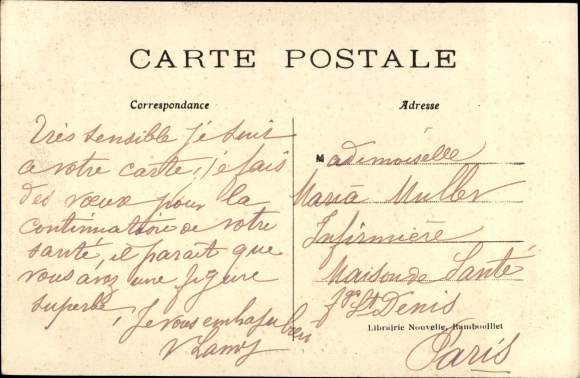 CARTE POSTALE
Correspondance
Adresse
Très sensible je suis
a votre carte, je fais
des vœux pour la
continuation de votre
santé, il parait que
vous avez une figure
superbe,
Je vous embrasse bien
Mademoiselle
Maria Muller
Infirmière
Maison de Santé
St Denis
Librairie Nouvelle, Rambouillet
Paris